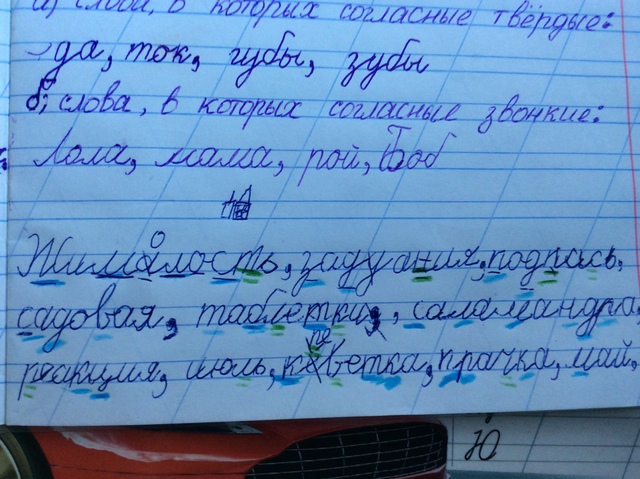 а) слова, в которых согласные твёрдые:
да, ток, губы, зубы
б) слова, в которых согласные звонкие:
Лола, мама, рой, Боб
Жималость, задуания, подпась,
садовая, таблетки, саламандра,
реакция, июль, кветка, прачка, май,
Ю